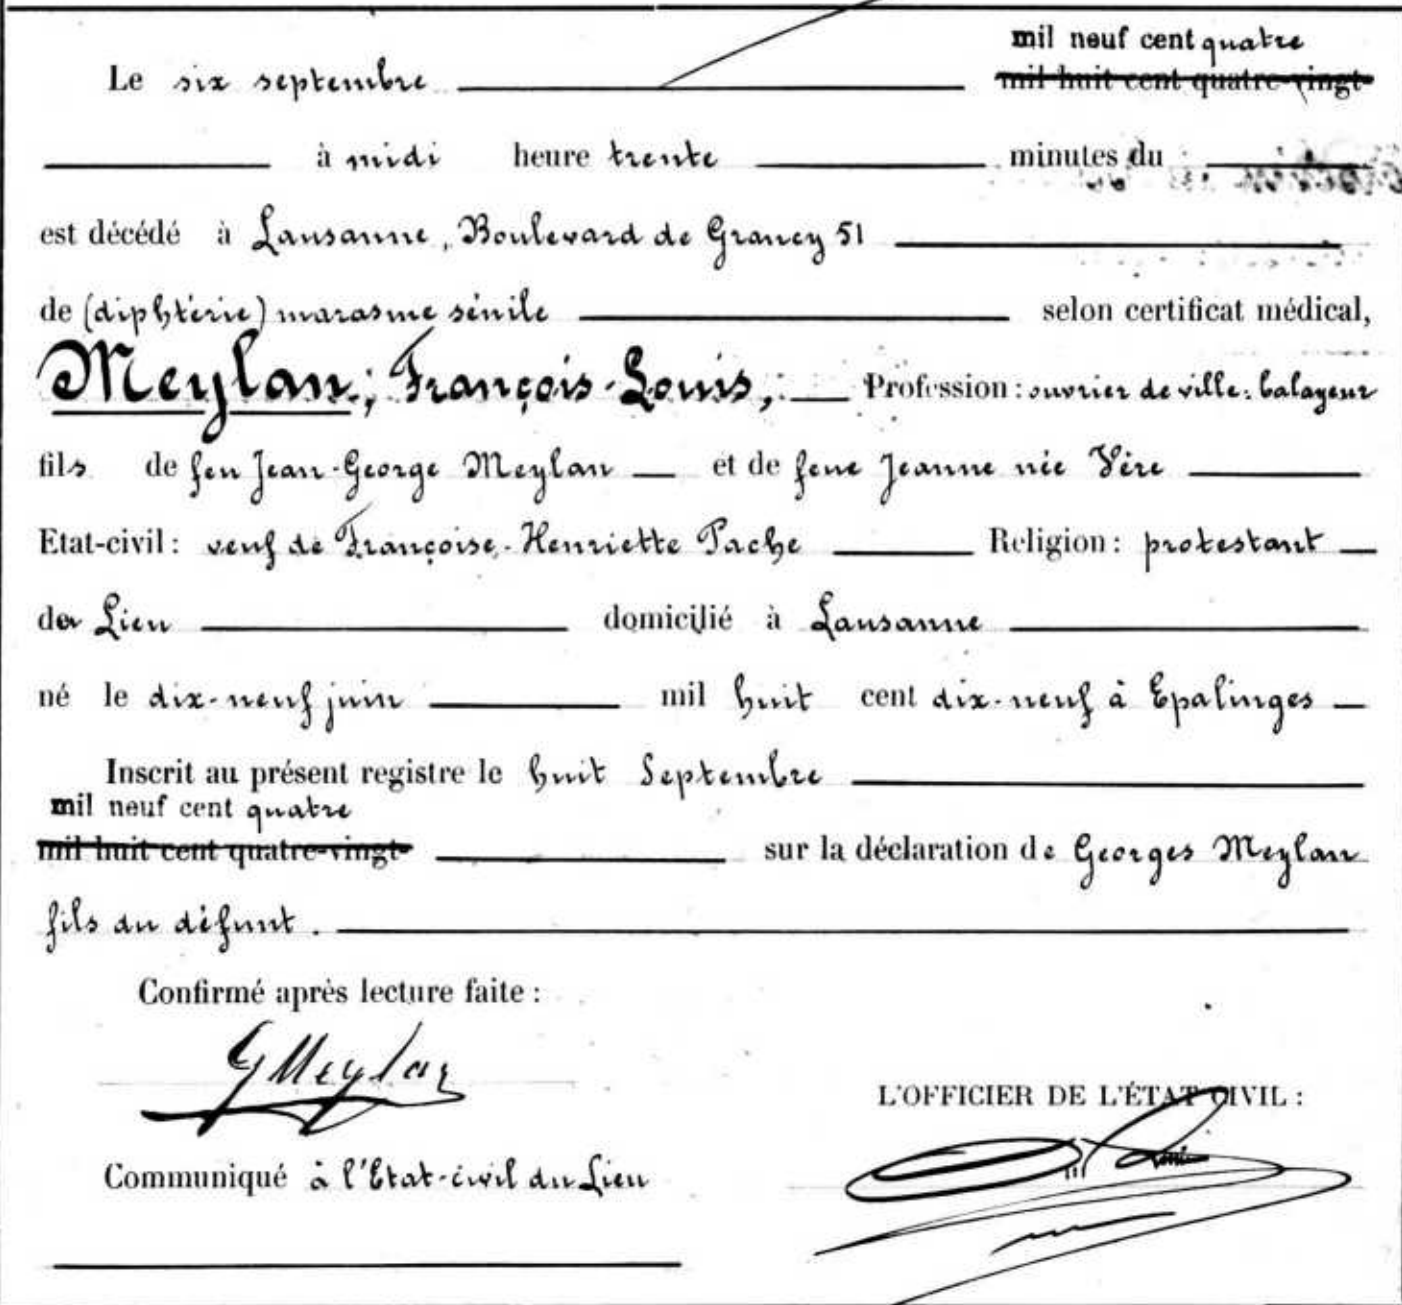 mil neuf cent quatre
Le six septembre mil huit cent quatre-vingt-
à midi heure trente minutes du
est décédé à Lausanne, Boulevard de Grancy 51
de (diphtérie) marasme sénile selon certificat médical,
Meylan, François-Louis, Profession : ouvrier de ville: balayeur
fils de feu Jean-George Meylan et de feue Jeanne née Vère
Etat-civil : veuf de Françoise-Henriette Pache Religion : protestant
du Lieu domicilié à Lausanne
né le dix-neuf juin mil huit cent dix-neuf à Epalinges
Inscrit au présent registre le huit Septembre
mil neuf cent quatre
mil huit cent quatre-vingt- sur la déclaration de Georges Meylan
fils du défunt.
Confirmé après lecture faite :
G Meylan
L'OFFICIER DE L'ÉTAT CIVIL :
Communiqué à l'Etat-civil du Lieu